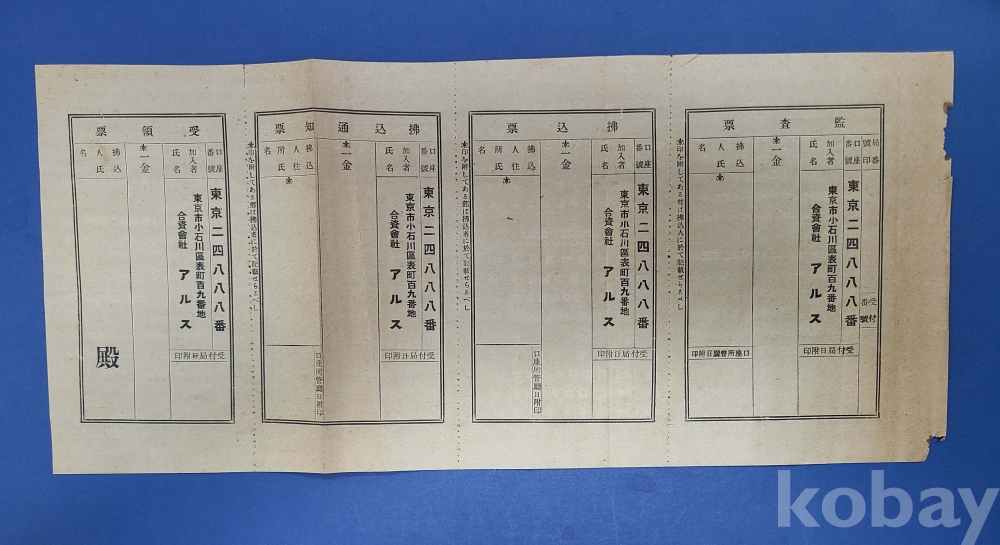 監査票
局番號印
口座番號
東京二四八八八番
受付番號
加入者氏名
東京市小石川區表町百九番地
合資會社 アルス
受付局日附印
*一金
拂込人氏名
口座所管廳日附印
*印を附してある部は拂込人に於て記載せらるべし
拂込票
口座番號
東京二四八八八番
加入者氏名
東京市小石川區表町百九番地
合資會社 アルス
受付局日附印
*一金
口座所管廳日附印
拂込人住所氏名
*
*印を附してある部は拂込者に於て記載せらるべし
拂込通知票
口座番號
東京二四八八八番
加入者氏名
東京市小石川區表町百九番地
合資會社 アルス
受付局日附印
*一金
口座所管廳日附印
拂込人住所氏名
*
*印を附してある部は拂込者に於て記載せらるべし
受領票
口座番號
東京二四八八八番
加入者氏名
東京市小石川區表町百九番地
合資會社 アルス
受付局日附印
*一金
拂込人氏名
殿
kobay